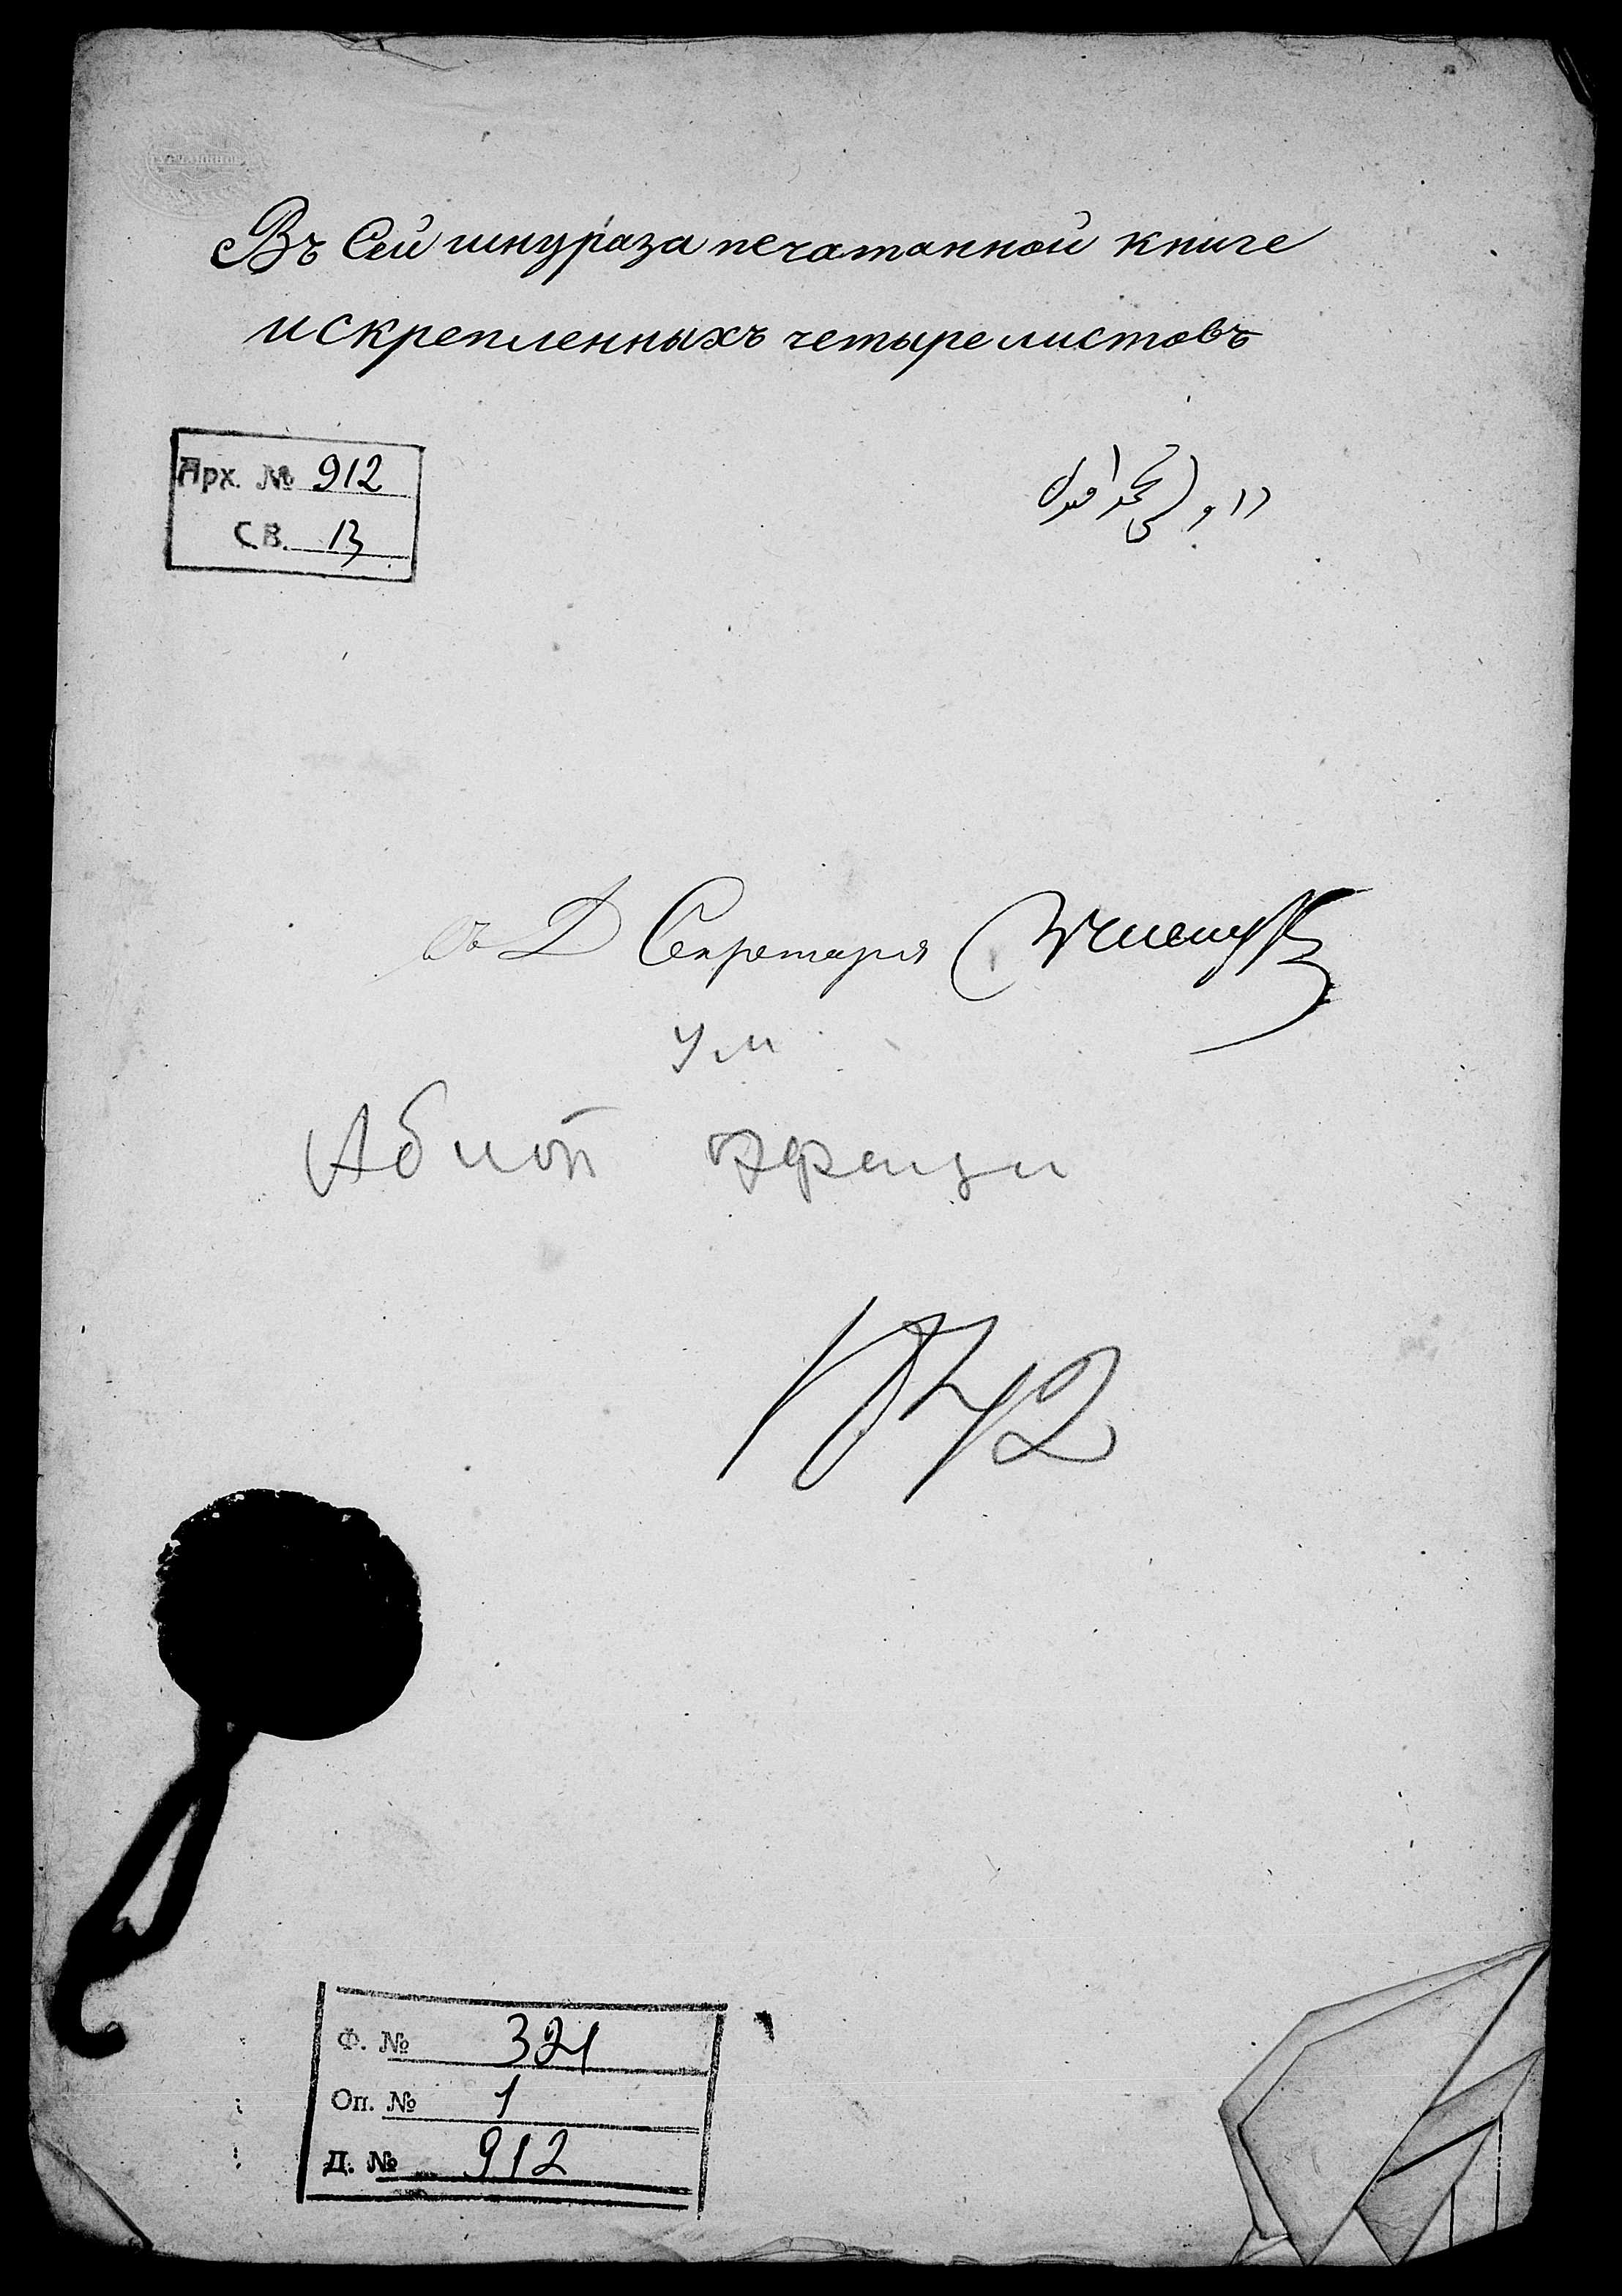 Въ Сей шнураза печатанной книге
искрепленныхъ четыре листовъ
Арх. № 912
СВ. 13
محمد
Секретаря
Ум
1872
Ф. № 321
Оп. № 1
Д. № 912